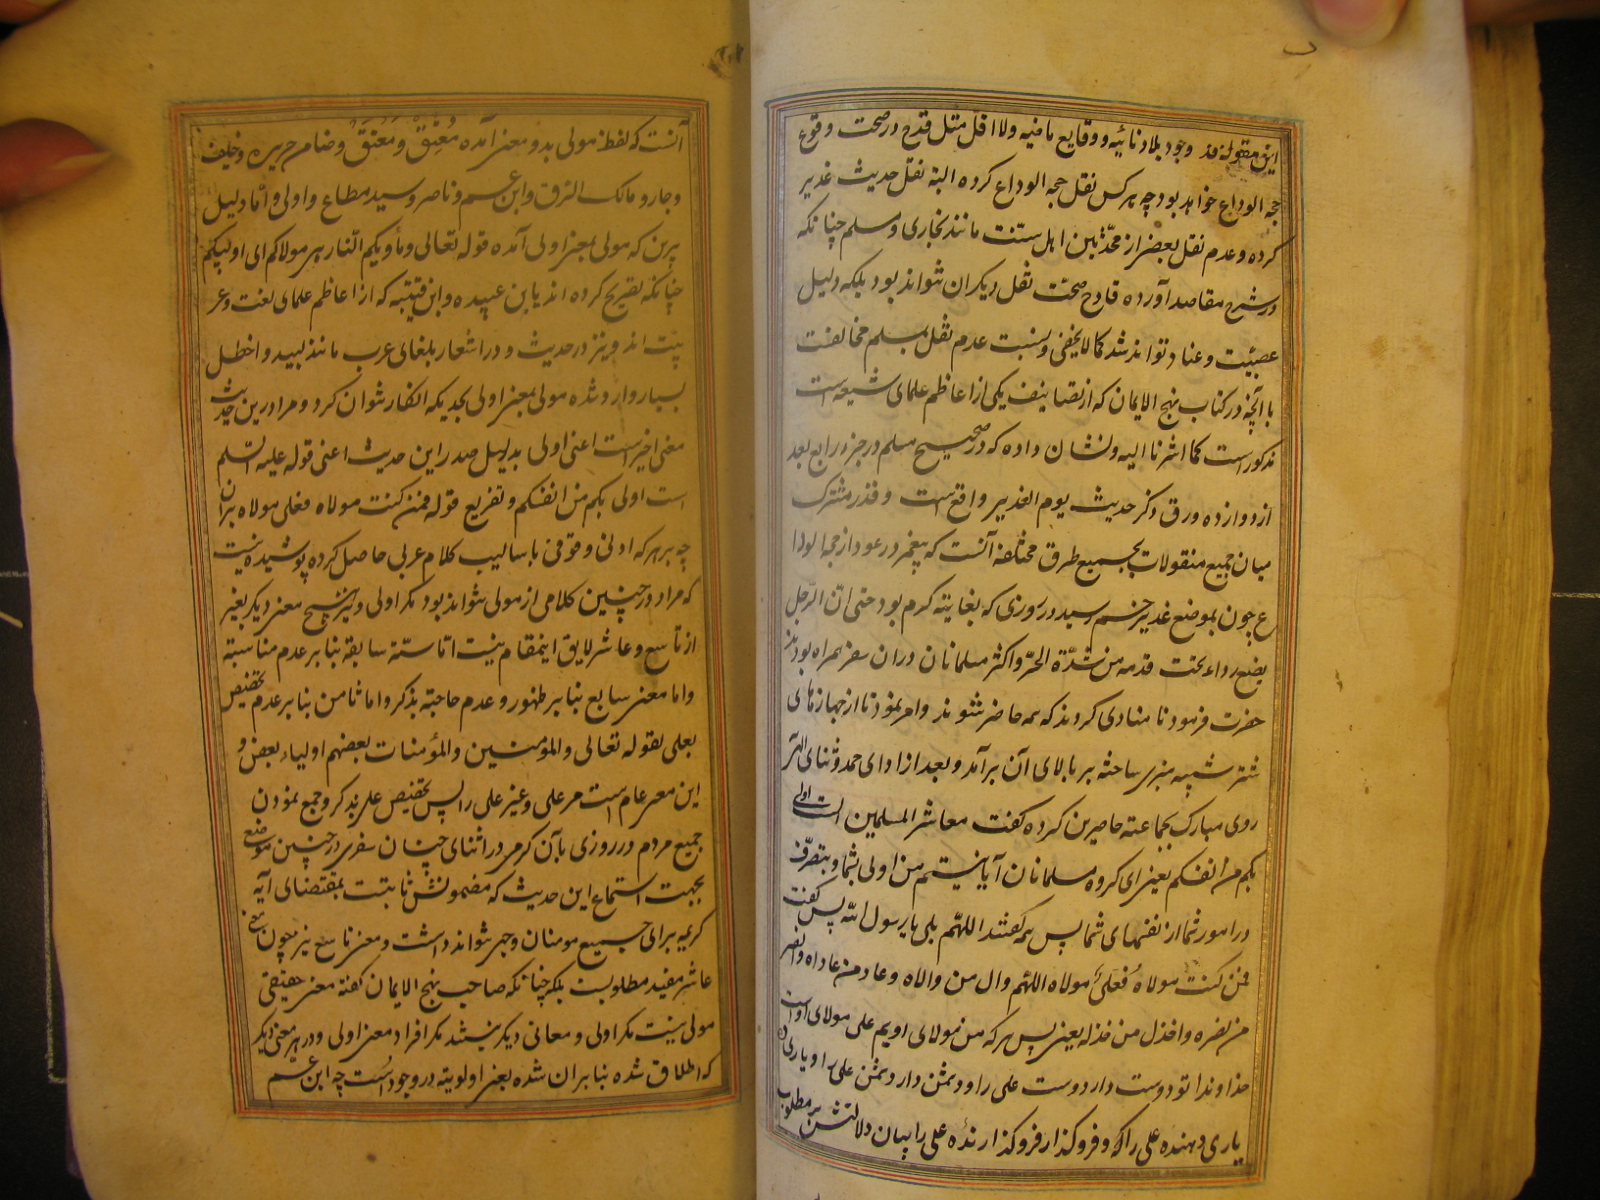 این مقوله قد وجود بلاد نائیه و وقایع ماضیه ولا اقل مثل قدح در صحت وقوع
حجه الوداع خواهد بود چه هر کس نقل حجه الوداع کرده البته نقل حدیث غدیر
کرده و عدم نقل بعضی از محدثین اهل سنت مانند بخاری و مسلم چنانکه
در شرح مقاصد آورده قادح صحت نقل دیگران نتواند بود بلکه دلیل
عصبیت و عناد تواند شد کما لا یخفی و نسبت عدم نقل بمسلم مخالفت
با آنچه در کتاب نهج الایمان که از تصانیف یکی از اعاظم علمای شیعه است
مذکور است کما اشرنا الیه و نشان داده که در صحیح مسلم در جزء رابع بعد
از دوازده ورق ذکر حدیث یوم الغدیر واقع است و قدر مشترک
میان جمیع منقولات بجمیع طرق مختلفه آنست که پیغمبر در عود از حجه الودا
ع چون بموضع غدیر خم رسید در روزی که بغایته کرم بود حتی ان الرجل
یضع رداءه تحت قدمه من شدة الحر و اکثر مسلمانان دران سفر همراه بودند
حضرت فرمود تا منادی کردند که همه حاضر شوند و امر نمود تا از جهازهای
شتر شبیه منبری ساخته بر بالای آن برآمد و بعد از ادای حمد و ثنای الهی
روی مبارک بجماعته حاضرین کرده کفت معاشر المسلمین الست اولی
بکم من انفسکم یعنی ای کروه مسلمانان آیا نیستم من اولی بشما و بتصرف
در امور شما از نفسهای شما پس همه کفتند اللهم بلی یا رسول الله پس کفت
فمن کنت مولاه فعلی مولاه اللهم وال من والاه و عاد من عاداه وانصر
من نصره واخذل من خذله یعنی پس هر که من مولای اویم علی مولای اوست
خداوندا تو دوست دار دوست علی را و دشمن دار دشمن علی را و یاری ده
یاری دهنده علی را که و فروکذار فروکذارنده علی را بیان دلالتش بر مطلوب
آنست که لفظ مولی بدو معنی آمده مُعتِق و مُعتَق و ضامن جریره و حلیف
و جار و مالک الرق و ابن عم و ناصر و سید مطاع و اولی و اما دلیل
برین که مولی بمعنی اولی آمده قوله تعالی و مأویکم النار هی مولاکم ای اولیکم
چنانکه تصریح کرده اند باین عبیده و ابن قتیبه که از اعاظم علمای لغت و عر
بیت اند و نیز در حدیث و در اشعار بلغای عرب مانند لبید و اخطل
بسیار وارد شده مولی بمعنی اولی بحدیکه انکار نتوان کرد و مراد درین حدیث
معنی اخیر است اعنی اولی بدلیل صدر این حدیث اعنی قوله علیه السلم
الست اولی بکم من انفسکم و تفریع قوله فمن کنت مولاه فعلی مولاه بران
چه بر هر که ادنی وقوفی باسالیب کلام عربی حاصل کرده پوشیده نیست
که مراد در چنین کلامی از مولی نتواند بود مکر اولی و نیز هیچ معنی دیکر بغیر
از تاسع و عاشر لایق اینمقام نیست اما سته سابقه بنا بر عدم مناسبته
و اما معنی سابع بنا بر ظهور و عدم حاجته بذکر و اما ثامن بنا بر عدم تخصیص
بعلی بقوله تعالی والمؤمنین والمؤمنات بعضهم اولیاء بعض و
این معنی عام است مر علی و غیر علی را پس تخصیص علی بذکر و جمع نمودن
جمیع مردم در روزی بآن کرمی در اثنای چنان سفری در چنین موضع
بجهت استماع این حدیث که مضمونش ثابتست بمقتضای آیه
کریمه برای جمیع مومنان وجهی نتواند داشت و معنی تاسع نیز چون معنی
عاشر مفید مطلوبست بلکه چنانکه صاحب نهج الایمان کفته معنی حقیقی
مولی نیست مکر اولی و معانی دیکر نیستند مکر افراد معنی اولی و در هر معنی دیکر
که اطلاق شده بنا بر آن شده یعنی اولویته در وجود است چه ابن عم